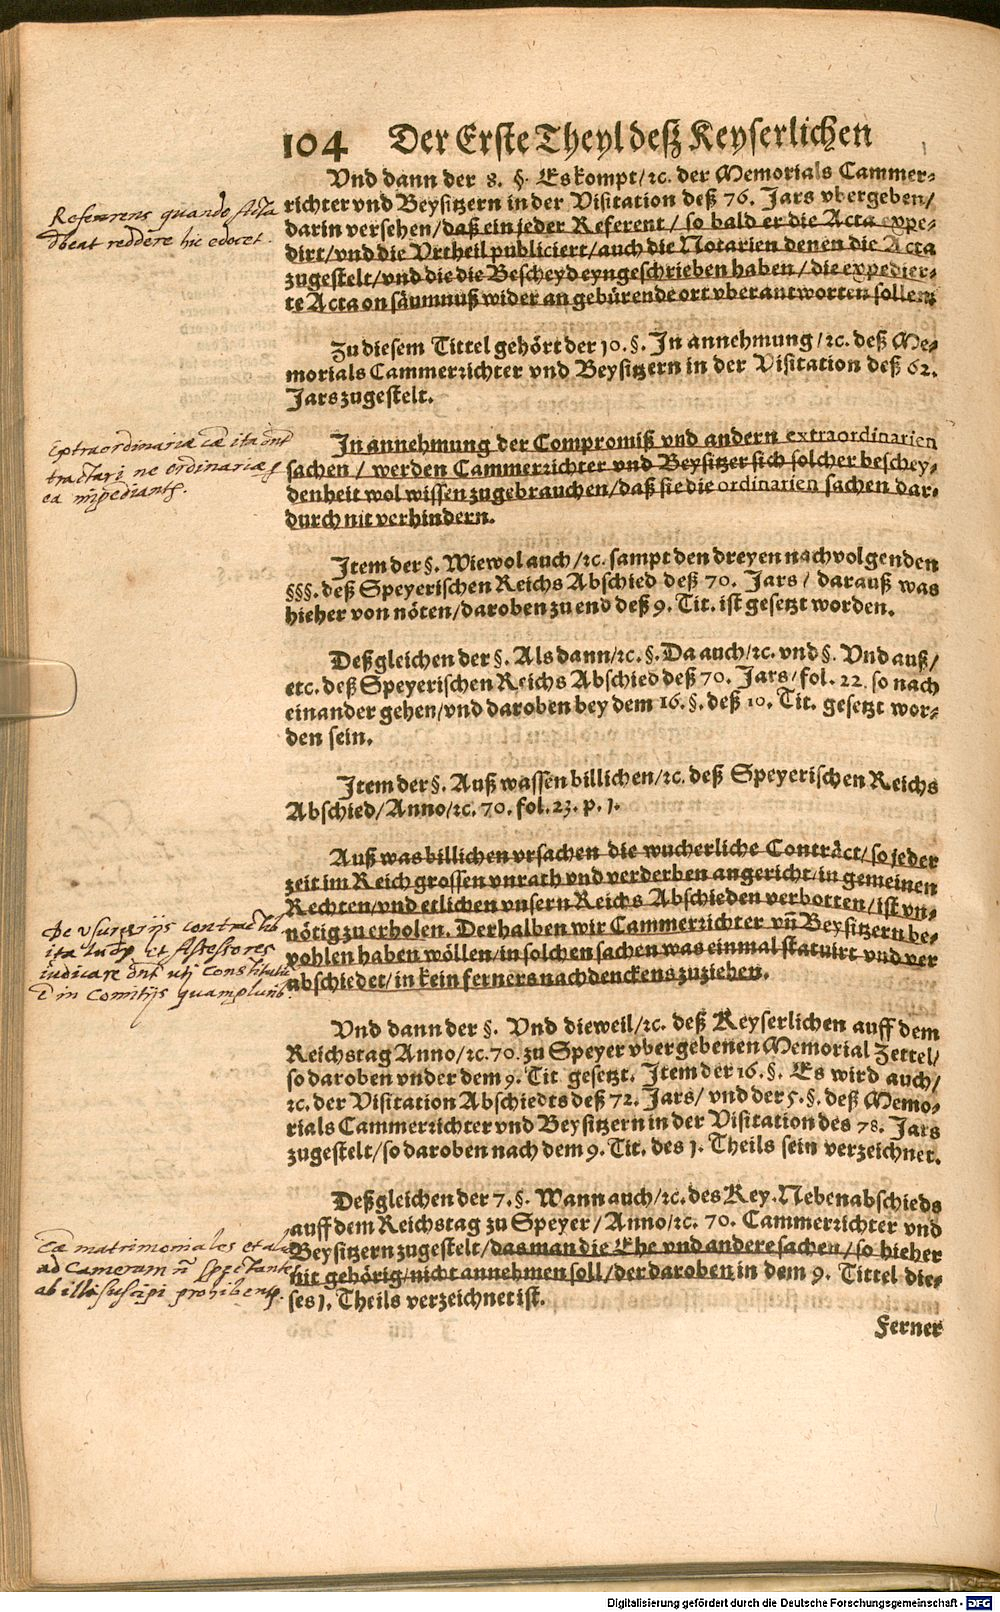 104 Der Erste Theyl deß Keyserlichen
Vnd dann der 8. §. Es kompt/ꝛc. der Memorials Cammer-
richter vnd Beysitzern in der Visitation deß 76. Jars vbergeben/
darin versehen/daß ein jeder Referent/ so bald er die Acta expe-
dirt/vnd die Vrtheil publiciert/auch die Notarien denen die Acta
zugestelt/vnd die die Bescheyd eyngeschrieben haben/die expedier-
te Acta on säumnuß wider an gebürende ort vberantworten sollen
Referens quando Acta
debeat reddere hic edocet.
Zu diesem Tittel gehört der 10. §. In annehmung/ꝛc. deß Me-
morials Cammerrichter vnd Beysitzern in der Visitation deß 62.
Jars zugestelt.
In annehmung der Compromiß vnd andern extraordinarien
sachen / werden Cammerrichter vnd Beysitzer sich solcher beschey-
denheit wol wissen zugebrauchen/daß sie die ordinarien sachen dar-
durch nit verhindern.
Extraordinariæ cæ ita dnt
tractari ne ordinariæ p
ea impediantr.
Item der §. Wiewol auch/ꝛc. sampt den dreyen nachvolgenden
§§§. deß Speyerischen Reichs Abschied deß 70. Jars / darauß was
hieher von nöten/daroben zu end deß 9. Tit. ist gesetzt worden.
Deßgleichen der §. Als dann/ꝛc. §. Da auch/ꝛc. vnd §. Vnd auß/
etc. deß Speyerischen Reichs Abschied deß 70. Jars/fol. 22. so nach
einander gehen/vnd daroben bey dem 16. §. deß 10. Tit. gesetzt wor-
den sein.
Item der §. Auß wassen billichen/ꝛc. deß Speyerischen Reichs
Abschied/Anno/ꝛc. 70. fol. 23. p. 1.
Auß was billichen vrsachen die wucherliche Conträct/so jeder
zeit im Reich grossen vnrath vnd verderben angericht/in gemeinen
Rechten/vnd etlichen vnsern Reichs Abschieden verbotten/ist vn-
nötig zu erholen. Derhalben wir Cammerrichter vñ Beysitzern be-
vohlen haben wöllen/in solchen sachen was einmal statuirt vnd ver
abschiedet/in kein ferners nachdenckens zuziehen.
De vsurarijs contractib
ita Iudex et Assessores
iudicare dnt uti Constitutu
e in Comitijs quamplurib.
Vnd dann der §. Vnd dieweil/ꝛc. deß Keyserlichen auff dem
Reichstag Anno/ꝛc. 70. zu Speyer vbergebenen Memorial Zettel/
so daroben vnder dem 9. Tit gesetzt. Item der 16. §. Es wird auch/
ꝛc. der Visitation Abschiedts deß 72. Jars/ vnd der 5. §. deß Memo-
rials Cammerrichter vnd Beysitzern in der Visitation des 78. Jars
zugestelt/so daroben nach dem 9. Tit. des 1. Theils sein verzeichnet.
Deßgleichen der 7. §. Wann auch/ꝛc. des Key. Nebenabschieds
auff dem Reichstag zu Speyer/Anno/ꝛc. 70. Cammerrichter vnd
Beysitzern zugestelt/das man die Ehe vnd andere sachen/so hieher
nit gehörig/nicht annehmen soll/der daroben in dem 9. Tittel die-
ses 1. Theils verzeichnet ist.
Cæ matrimoniales et aliæ
ad Cameram ñ spectantes
ab illa suscipi prohibentr.
Ferner
Digitalisierung gefördert durch die Deutsche Forschungsgemeinschaft - DFG